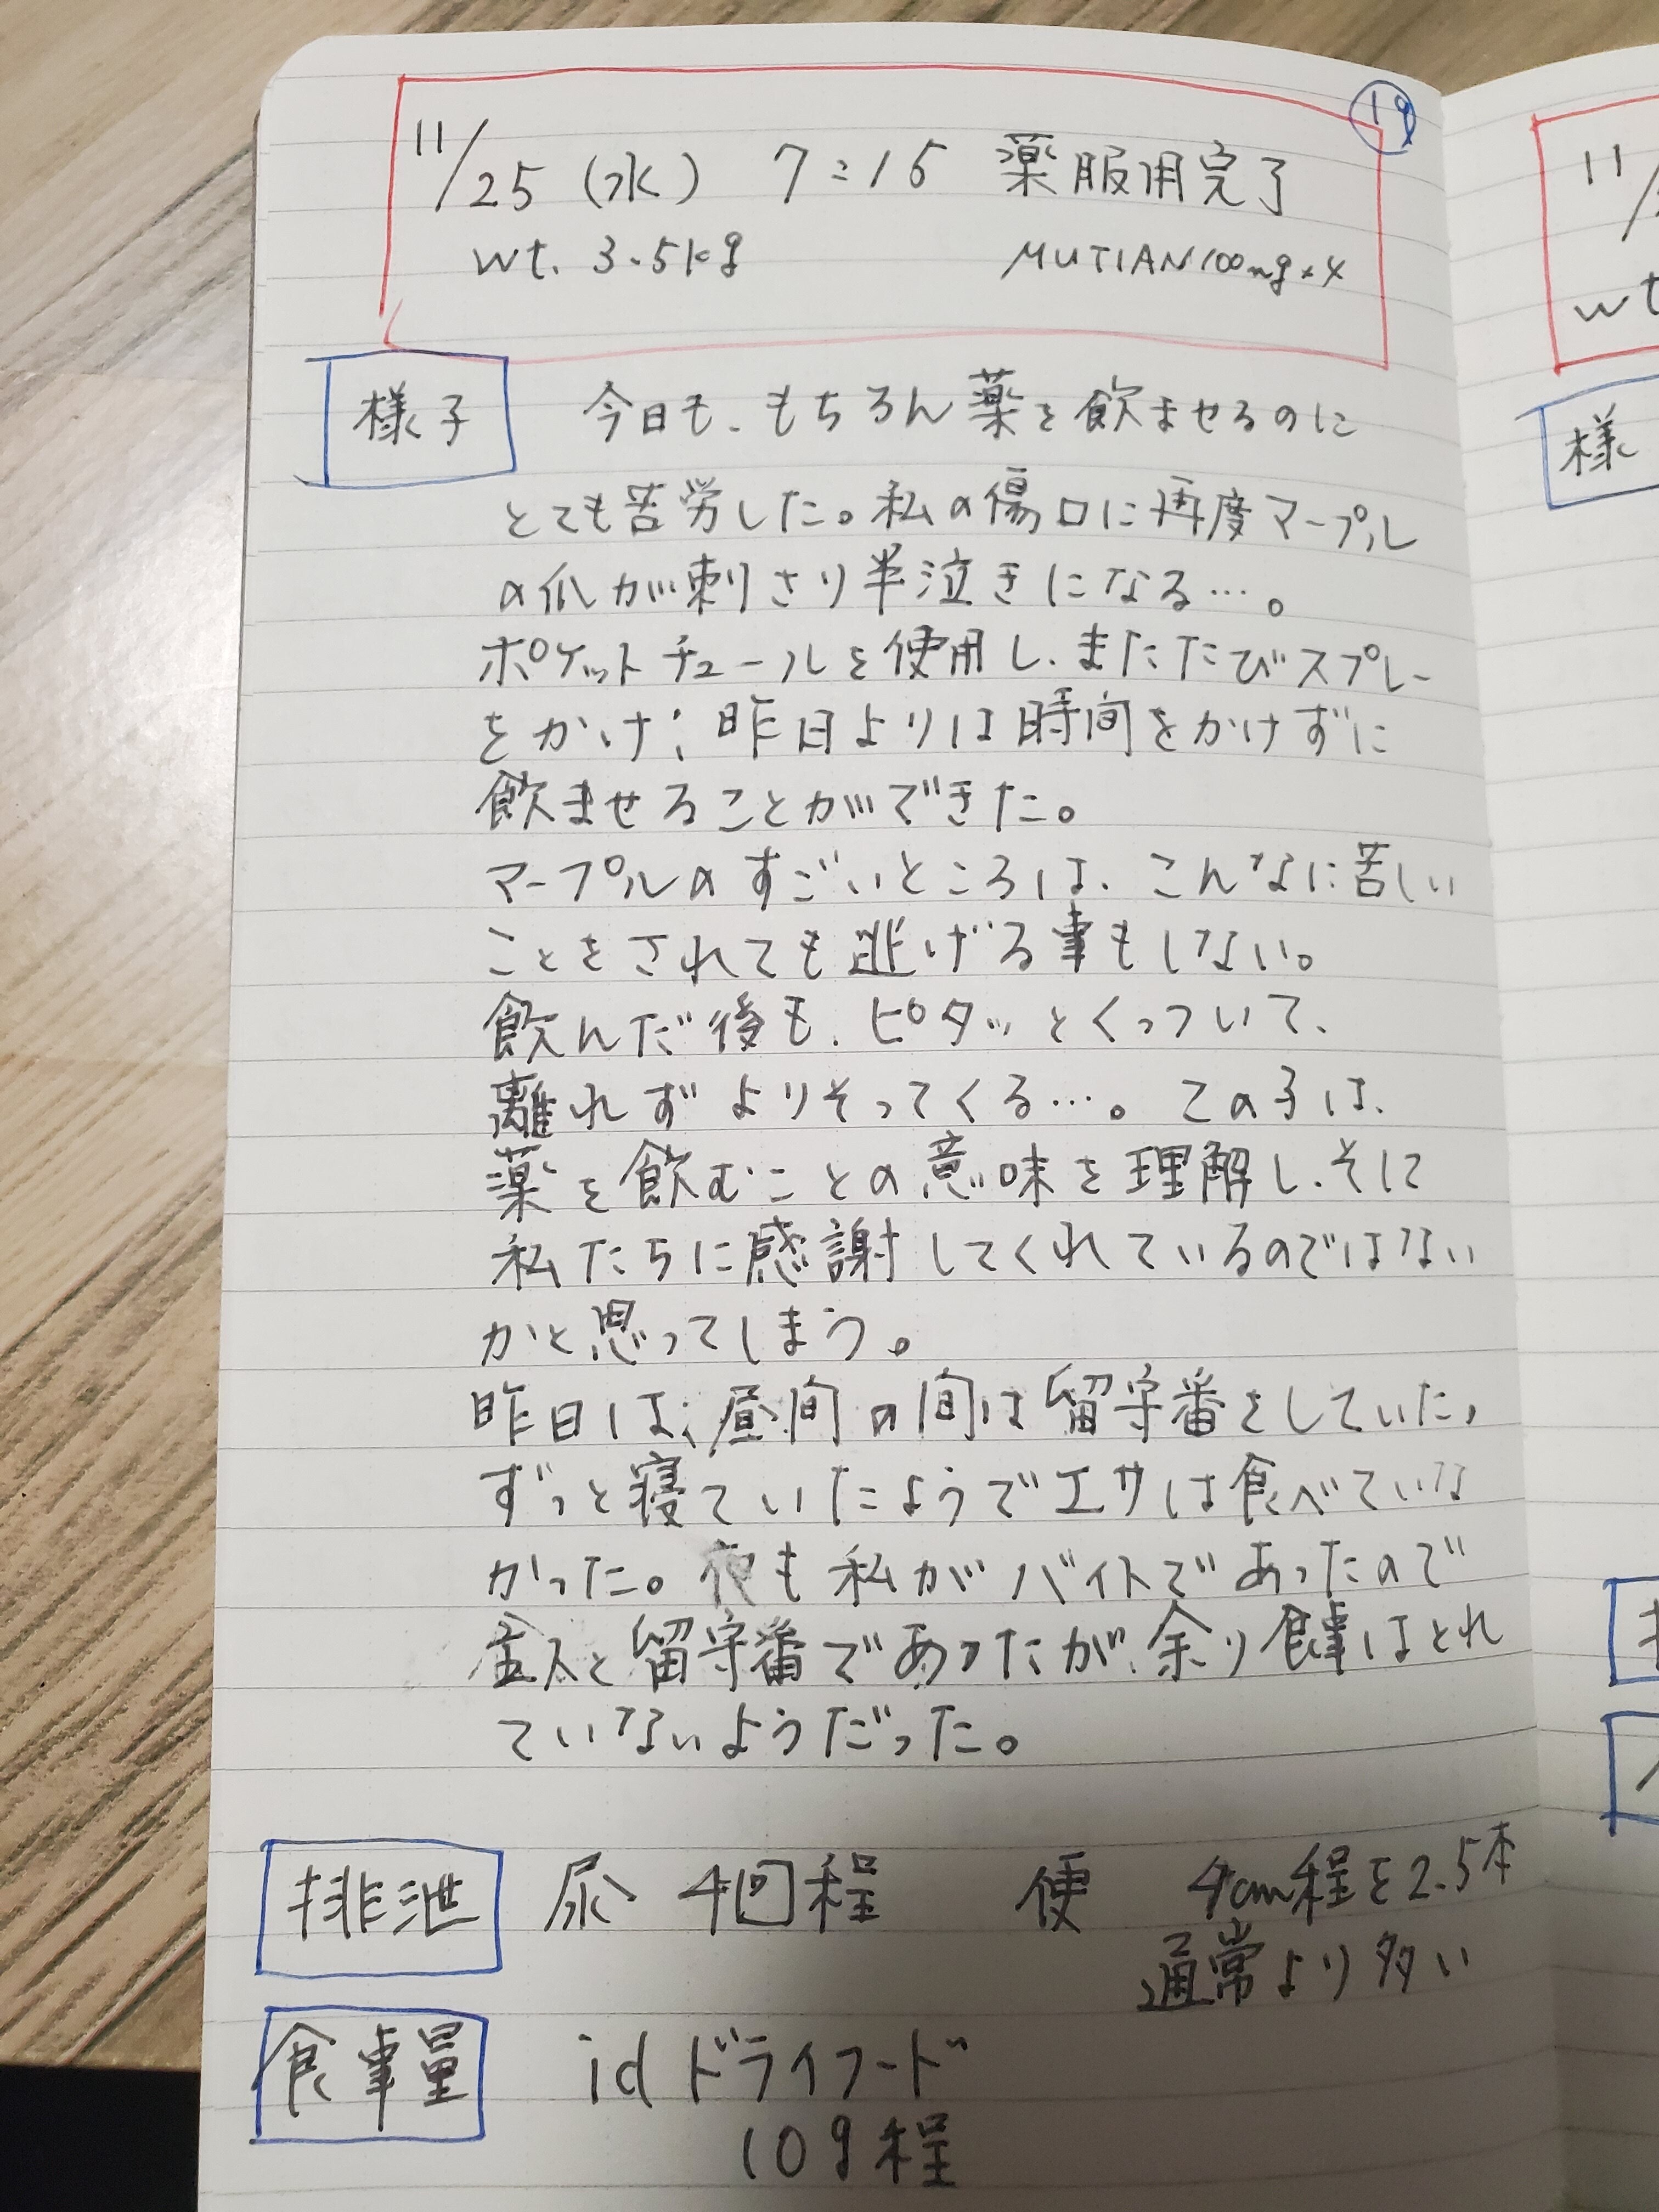 19
11/25 (水) 7:15 薬服用完了
wt. 3.5kg MUTIAN100mg×4
様子 今日も、もちろん薬を飲ませるのに
とても苦労した。私の傷口に再度マープル
の爪が刺さり半泣きになる…。
ポケットチュールを使用し、またたびスプレー
をかけ、昨日よりは時間をかけずに
飲ませることができた。
マープルのすごいところは、こんなに苦しい
ことをされても逃げる事もしない。
飲んだ後も、ピタッとくっついて、
離れずよりそってくる…。この子は、
薬を飲むことの意味を理解し、そして
私たちに感謝してくれているのではない
かと思ってしまう。
昨日は、昼間の間は留守番をしていた、
ずっと寝ていたようでエサは食べていな
かった。夜も私がバイトであったので
金太と留守番であったが、余り食事はとれ
ていないようだった。
排泄 尿 4回程 便 4cm程を2.5本
通常より多い
食事量 id ドライフード
10g程
11/
wt
様